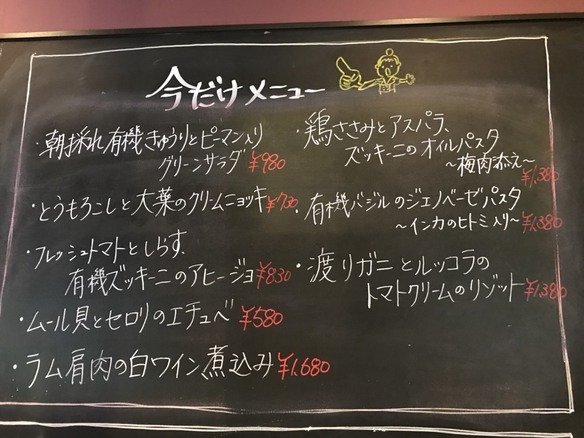 今だけメニュー
・朝採れ有機きゅうりとピーマン入り
グリーンサラダ ¥980
・とうもろこしと大葉のクリームニョッキ ¥730
・フレッシュトマトとしらす、
有機ズッキーニのアヒージョ ¥830
・ムール貝とセロリのエチュベ ¥580
・ラム肩肉の白ワイン煮込み ¥1,680
・鶏ささみとアスパラ、
ズッキーニのオイルパスタ
〜梅肉添え〜 ¥1,380
・有機バジルのジェノベーゼパスタ
〜インカのヒトミ入り〜 ¥1,380
・渡りガニとルッコラの
トマトクリームのリゾット ¥1,380